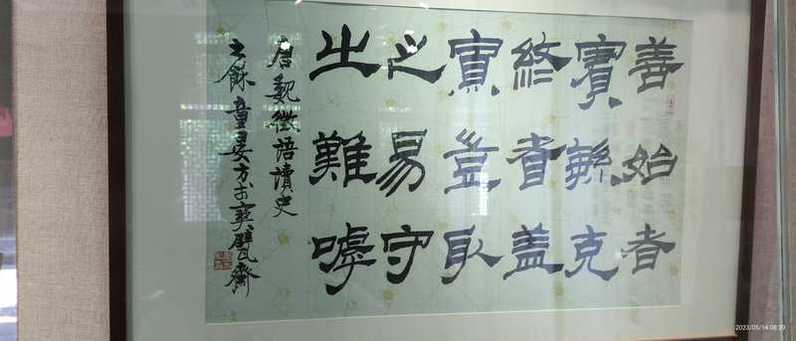 善始者
賓繁克
終者蓋
寡豈取
之易守
之難嘑
唐魏徵語讀史
之餘童晏方於寶甓齋
2023/05/14 08:39